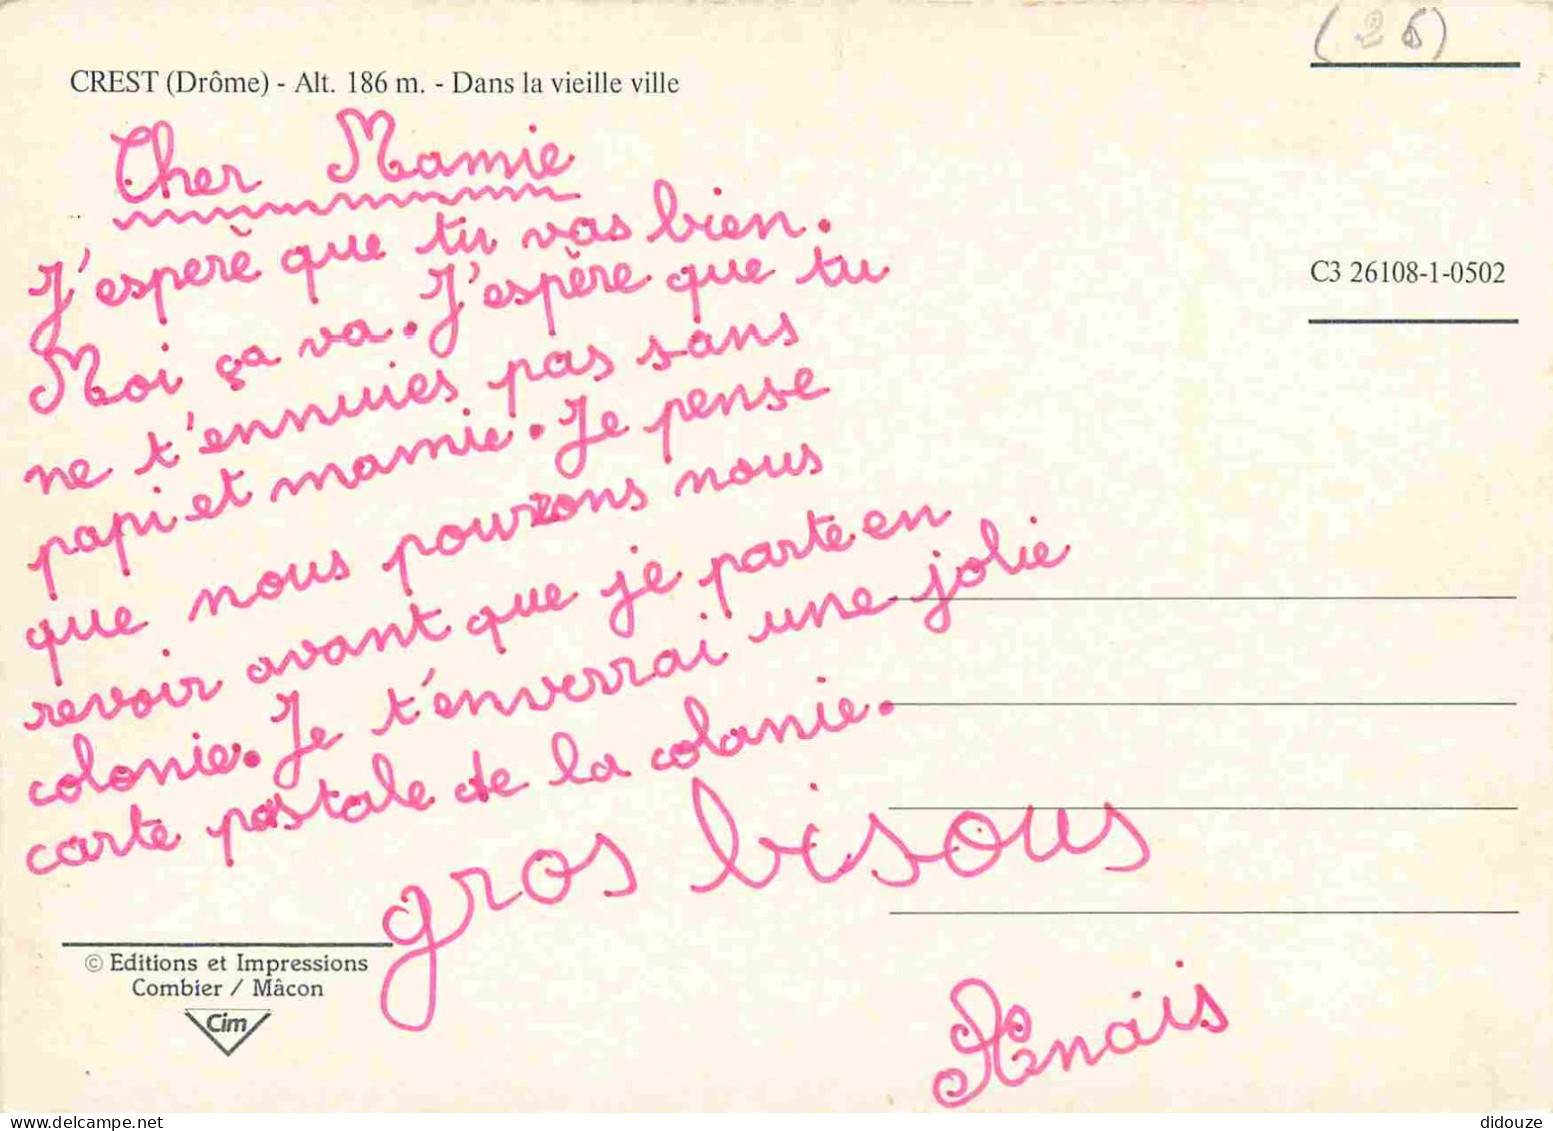 (26)
CREST (Drôme) - Alt. 186 m. - Dans la vieille ville
Cher Mamie
J'esperè que tu vas bien.
Moi ça va. J'espère que tu
ne t'ennuies pas sans
papi et mamie. Je pense
que nous pourrons nous
revoir avant que je parte en
colonie. Je t'enverrai une jolie
carte postale de la colonie.
gros bisous
Anais
C3 26108-1-0502
© Editions et Impressions
Combier / Mâcon
Cim
didouze